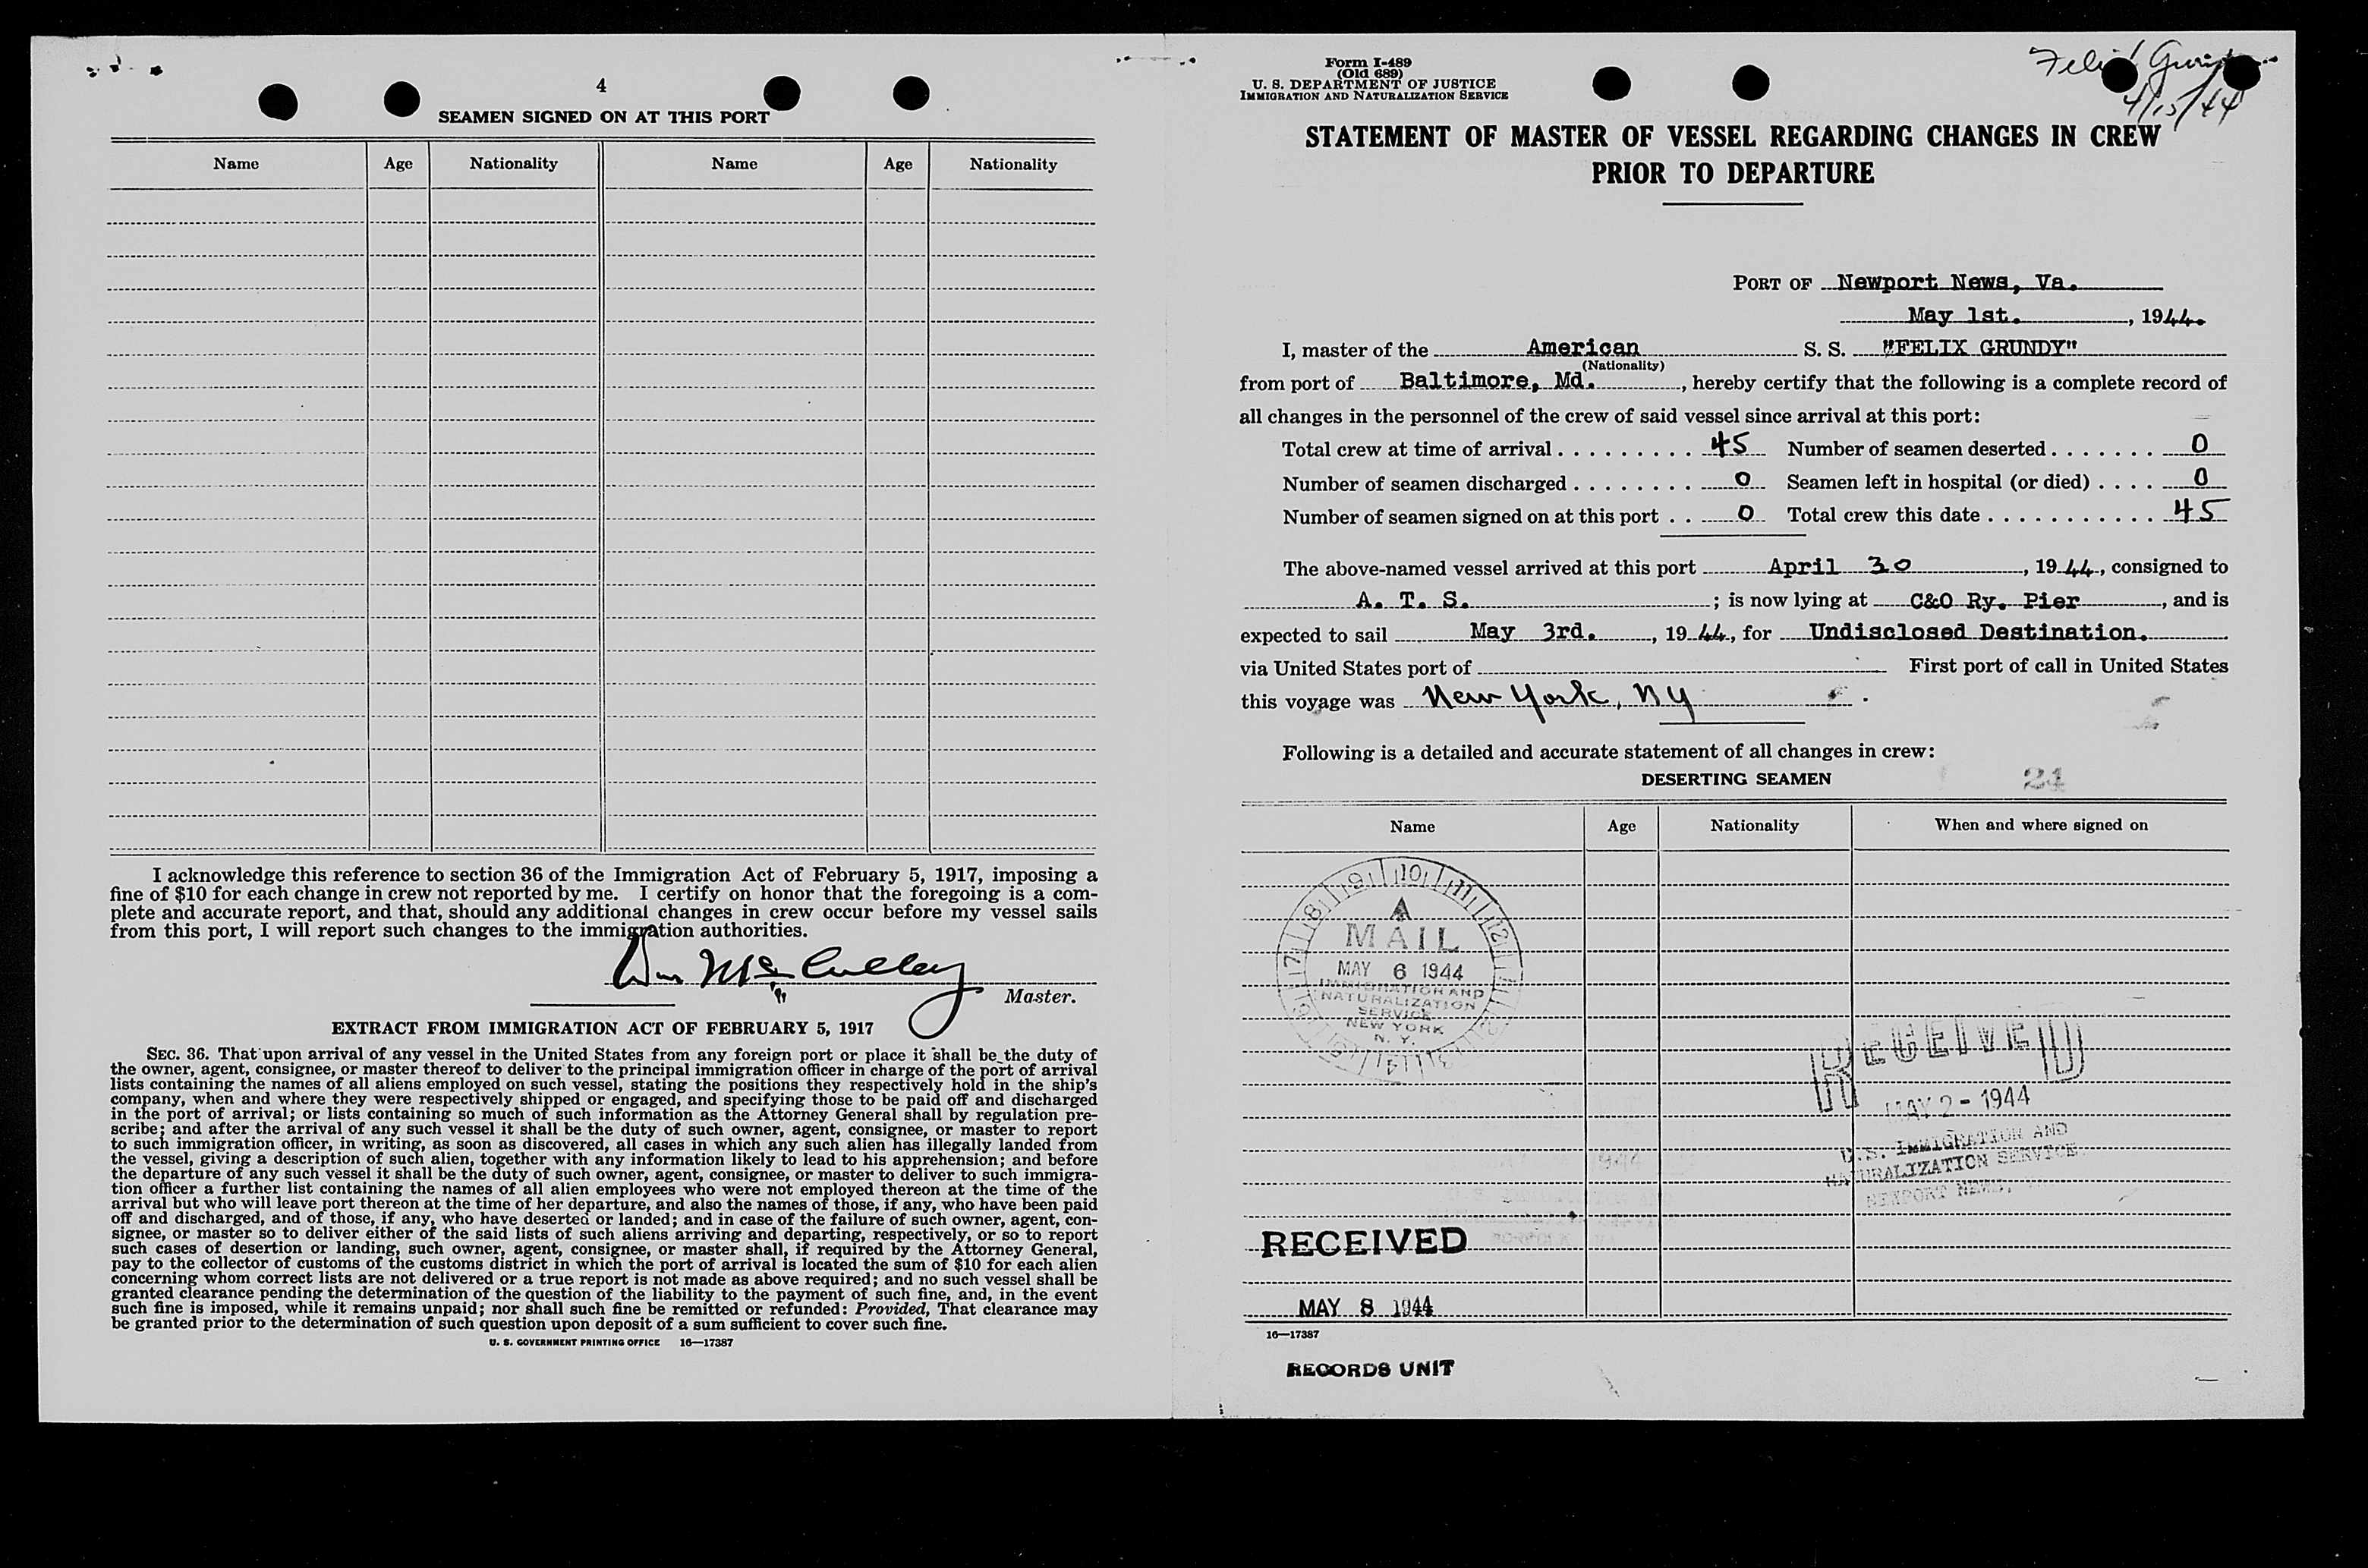 4
SEAMEN SIGNED ON AT THIS PORT
Name Age Nationality Name Age Nationality
I acknowledge this reference to section 36 of the Immigration Act of February 5, 1917, imposing a
fine of $10 for each change in crew not reported by me. I certify on honor that the foregoing is a com-
plete and accurate report, and that, should any additional changes in crew occur before my vessel sails
from this port, I will report such changes to the immigration authorities.
Wm McCulley
Master.
EXTRACT FROM IMMIGRATION ACT OF FEBRUARY 5, 1917
SEC. 36. That upon arrival of any vessel in the United States from any foreign port or place it shall be the duty of
the owner, agent, consignee, or master thereof to deliver to the principal immigration officer in charge of the port of arrival
lists containing the names of all aliens employed on such vessel, stating the positions they respectively hold in the ship's
company, when and where they were respectively shipped or engaged, and specifying those to be paid off and discharged
in the port of arrival; or lists containing so much of such information as the Attorney General shall by regulation pre-
scribe; and after the arrival of any such vessel it shall be the duty of such owner, agent, consignee, or master to report
to such immigration officer, in writing, as soon as discovered, all cases in which any such alien has illegally landed from
the vessel, giving a description of such alien, together with any information likely to lead to his apprehension; and before
the departure of any such vessel it shall be the duty of such owner, agent, consignee, or master to deliver to such immigra-
tion officer a further list containing the names of all alien employees who were not employed thereon at the time of the
arrival but who will leave port thereon at the time of her departure, and also the names of those, if any, who have been paid
off and discharged, and of those, if any, who have deserted or landed; and in case of the failure of such owner, agent, con-
signee, or master so to deliver either of the said lists of such aliens arriving and departing, respectively, or so to report
such cases of desertion or landing, such owner, agent, consignee, or master shall, if required by the Attorney General,
pay to the collector of customs of the customs district in which the port of arrival is located the sum of $10 for each alien
concerning whom correct lists are not delivered or a true report is not made as above required; and no such vessel shall be
granted clearance pending the determination of the question of the liability to the payment of such fine, and, in the event
such fine is imposed, while it remains unpaid; nor shall such fine be remitted or refunded: Provided, That clearance may
be granted prior to the determination of such question upon deposit of a sum sufficient to cover such fine.
U. S. GOVERNMENT PRINTING OFFICE 16—17387
Form I-489
(Old 689)
U. S. DEPARTMENT OF JUSTICE
IMMIGRATION AND NATURALIZATION SERVICE
4/15/44
STATEMENT OF MASTER OF VESSEL REGARDING CHANGES IN CREW
PRIOR TO DEPARTURE
PORT OF Newport News, Va.
May 1st. , 1944.
I, master of the American S. S. "FELIX GRUNDY"
(Nationality)
from port of Baltimore, Md. , hereby certify that the following is a complete record of
all changes in the personnel of the crew of said vessel since arrival at this port:
Total crew at time of arrival 45 Number of seamen deserted 0
Number of seamen discharged 0 Seamen left in hospital (or died) 0
Number of seamen signed on at this port 0 Total crew this date 45
The above-named vessel arrived at this port April 30 , 1944, consigned to
A. T. S. ; is now lying at C&O Ry. Pier , and is
expected to sail May 3rd. , 1944, for Undisclosed Destination.
via United States port of First port of call in United States
this voyage was New York, NY .
Following is a detailed and accurate statement of all changes in crew:
DESERTING SEAMEN 24
Name Age Nationality When and where signed on
MAIL
MAY 6 1944
IMMIGRATION AND
NATURALIZATION
SERVICE
NEW YORK
N. Y.
RECEIVED
MAY 2 - 1944
U.S. IMMIGRATION AND
NATURALIZATION SERVICE
NEWPORT NEWS,
RECEIVED
MAY 8 1944
16—17387
RECORDS UNIT